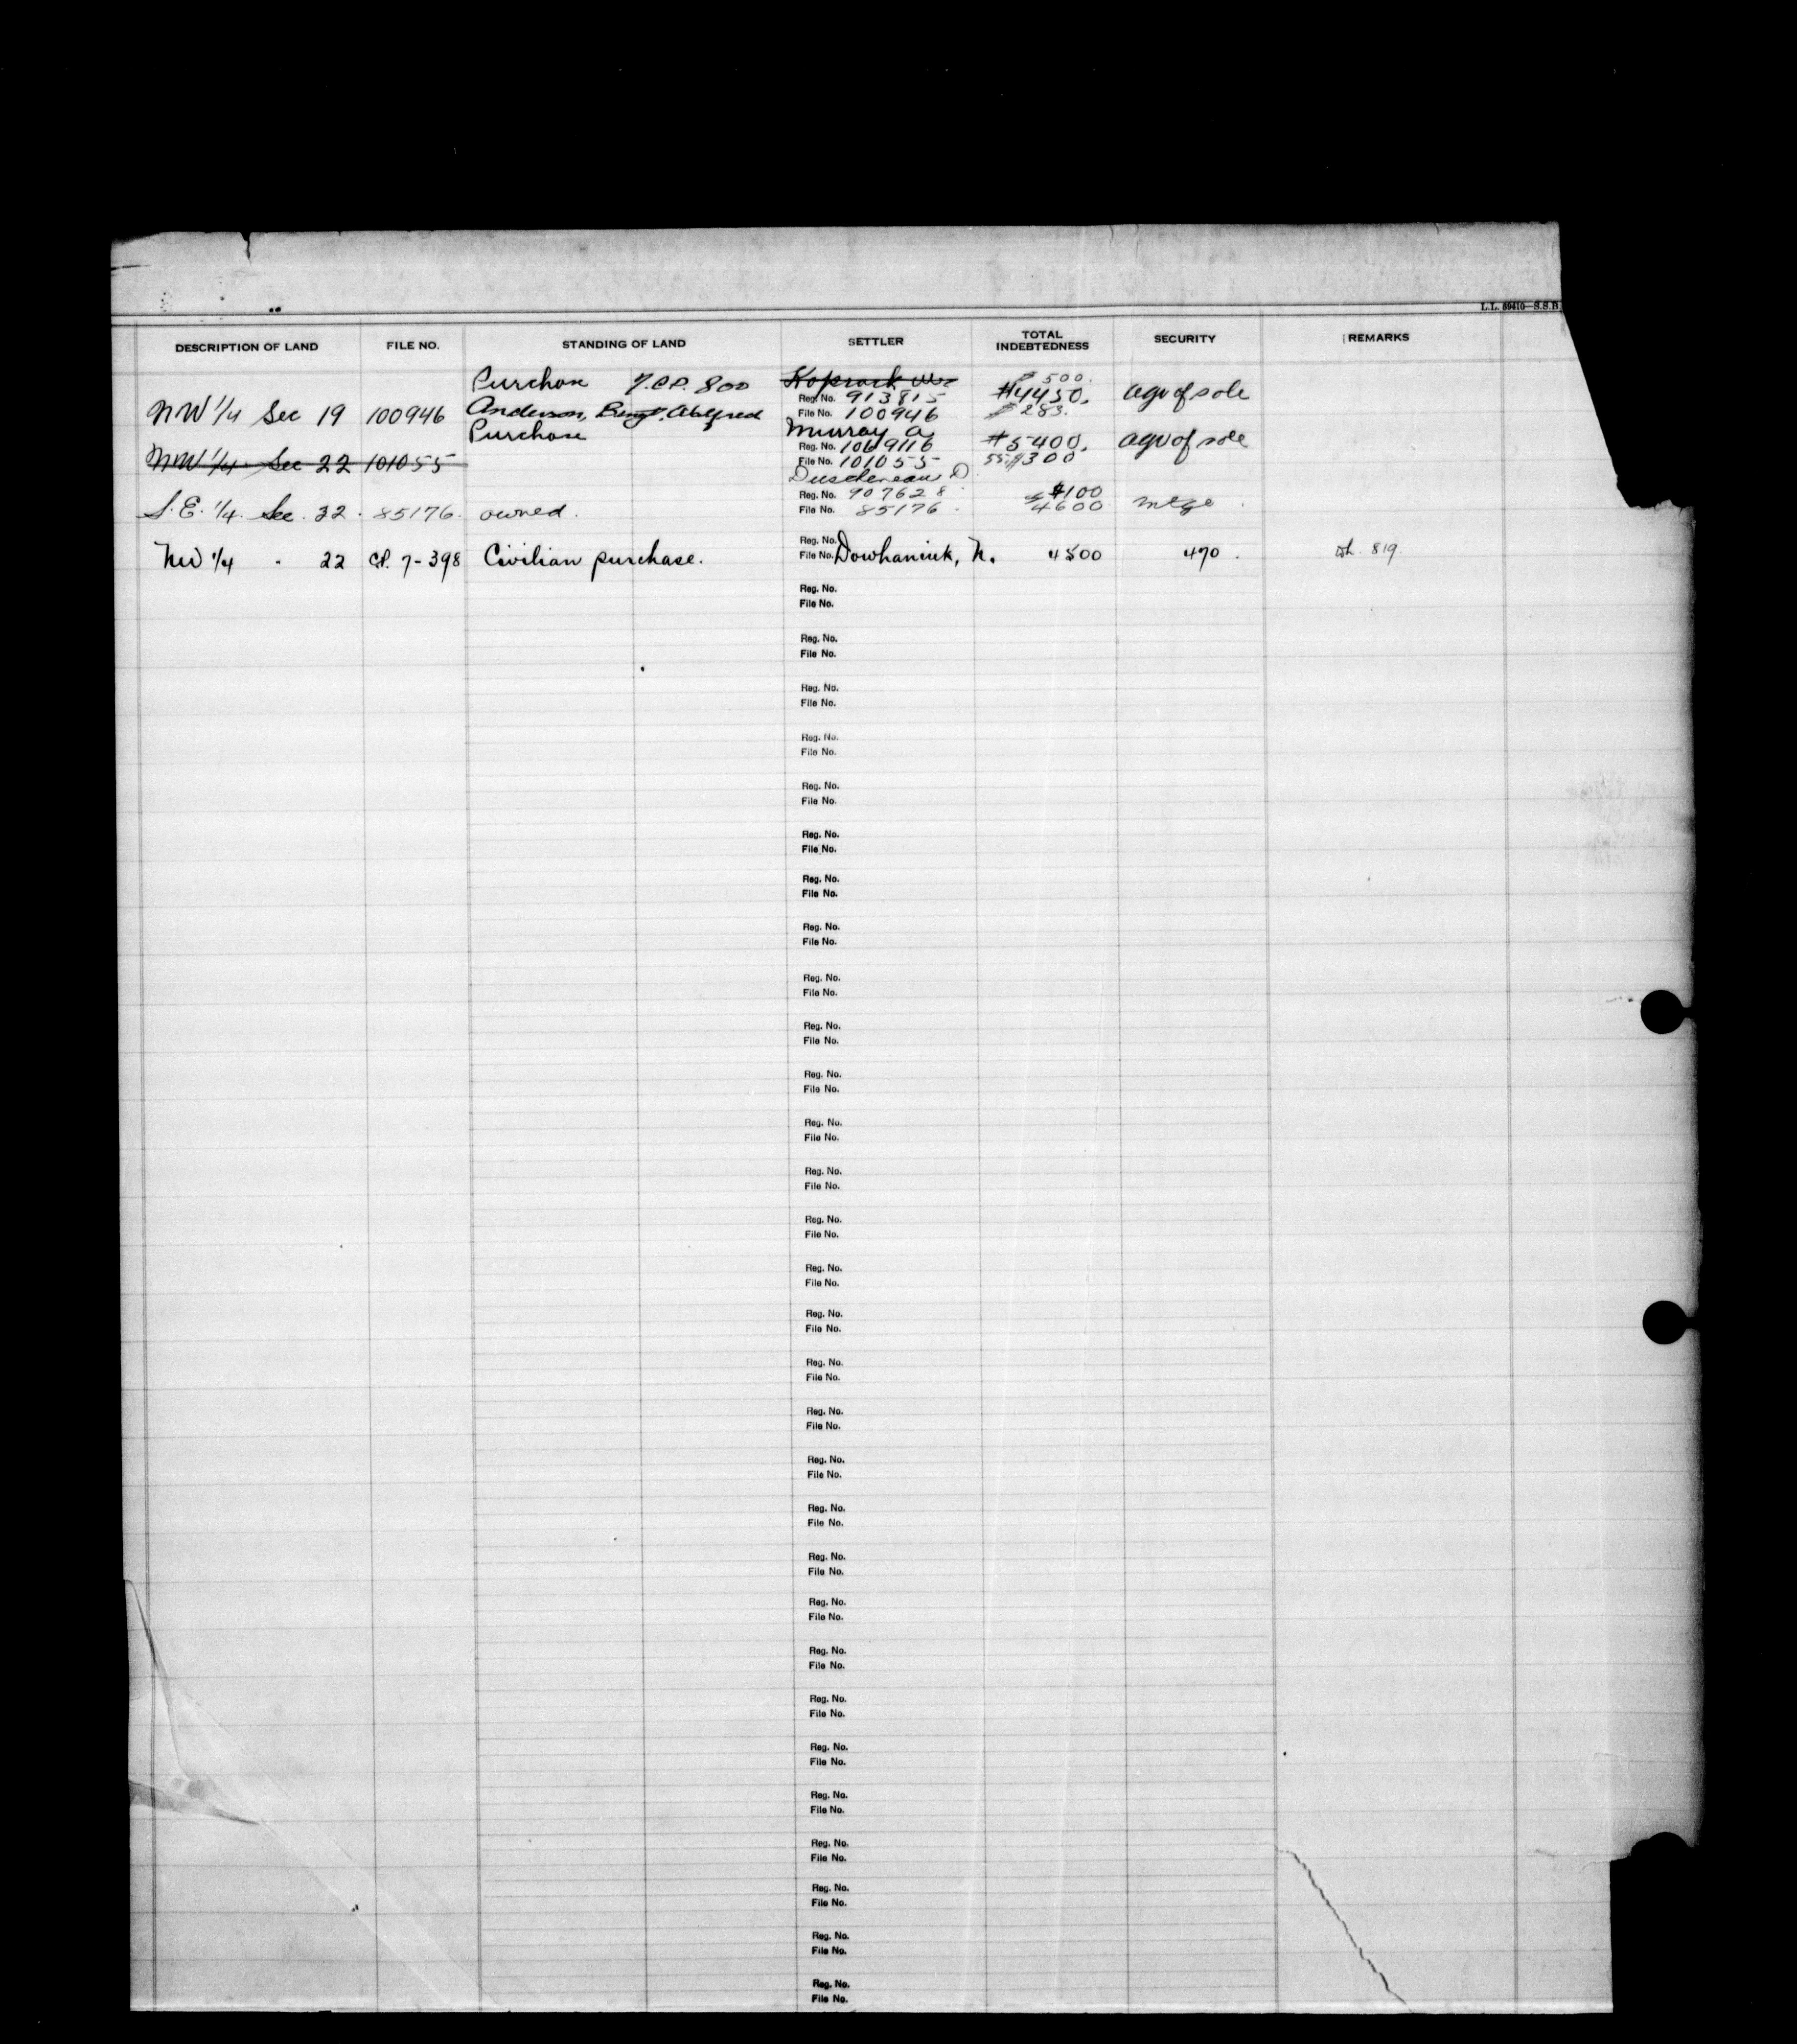 L.L. 69410—S.S.B
DESCRIPTION OF LAND FILE NO. STANDING OF LAND SETTLER TOTAL INDEBTEDNESS SECURITY REMARKS
Purchase 800 $500.
Reg. No. 913815 $4450. agr of sale
NW 1/4 Sec 19 100946 Anderson, File No. 100946 $283.
Purchase Murray A
Reg. No. 1069116 $5400. agr of sale
NW 1/4 Sec 22 101055 File No. 101055 300
Reg. No. 907628 $100
S.E. 1/4 Sec. 32. 85176. owned. File No. 85176. 4600 mtge
Reg. No.
NW 1/4 " 22 CP. 7-398 Civilian purchase. File No. Dowhaniuk, N. 4500 470. 819.
Reg. No.
File No.
Reg. No.
File No.
Reg. No.
File No.
Reg. No.
File No.
Reg. No.
File No.
Reg. No.
File No.
Reg. No.
File No.
Reg. No.
File No.
Reg. No.
File No.
Reg. No.
File No.
Reg. No.
File No.
Reg. No.
File No.
Reg. No.
File No.
Reg. No.
File No.
Reg. No.
File No.
Reg. No.
File No.
Reg. No.
File No.
Reg. No.
File No.
Reg. No.
File No.
Reg. No.
File No.
Reg. No.
File No.
Reg. No.
File No.
Reg. No.
File No.
Reg. No.
File No.
Reg. No.
File No.
Reg. No.
File No.
Reg. No.
File No.
Reg. No.
File No.
Reg. No.
File No.
Reg. No.
File No.